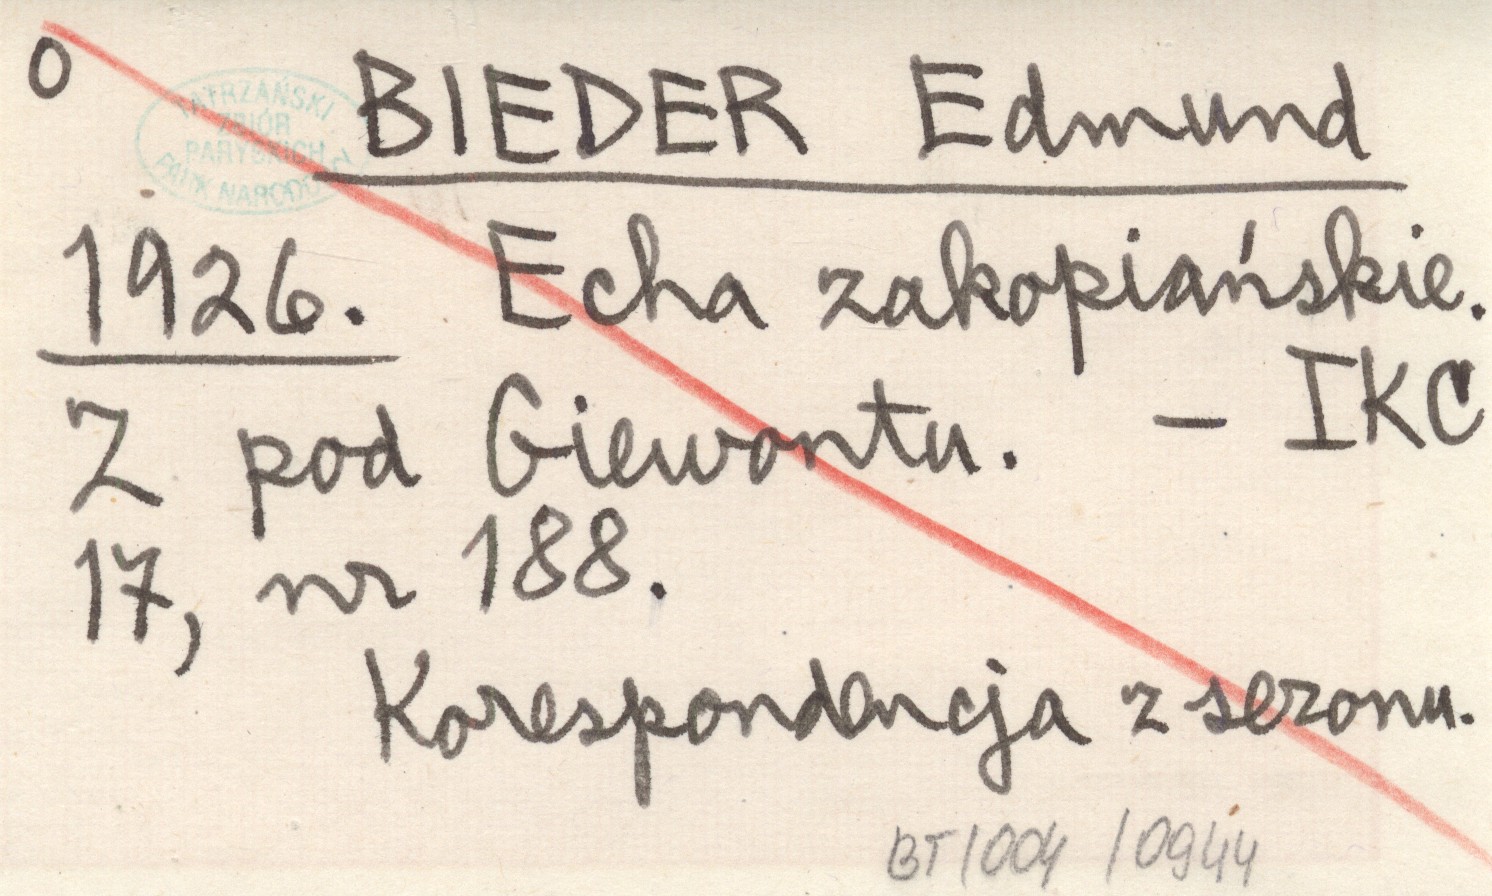 O
TATRZAŃSKI
ZBIÓR
PARYSKICH
PARK NARODOWY
BIEDER Edmund
1926. Echa zakopiańskie.
Z pod Giewontu. – IKC
17, nr 188.
Korespondencja z sezonu.
BT/004 /0944